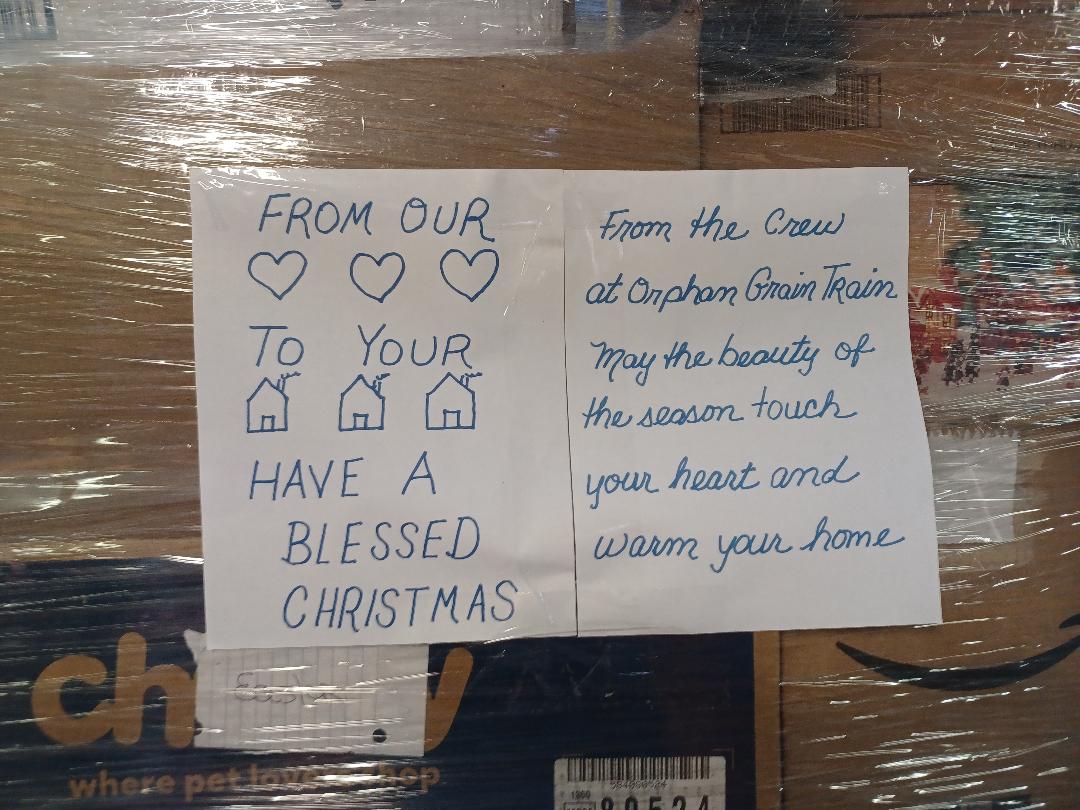 FROM OUR
TO YOUR
HAVE A
BLESSED
CHRISTMAS
From the Crew
at Orphan Grain Train
May the beauty of
the season touch
your heart and
warm your home
where pet lovers shop
1360
80524